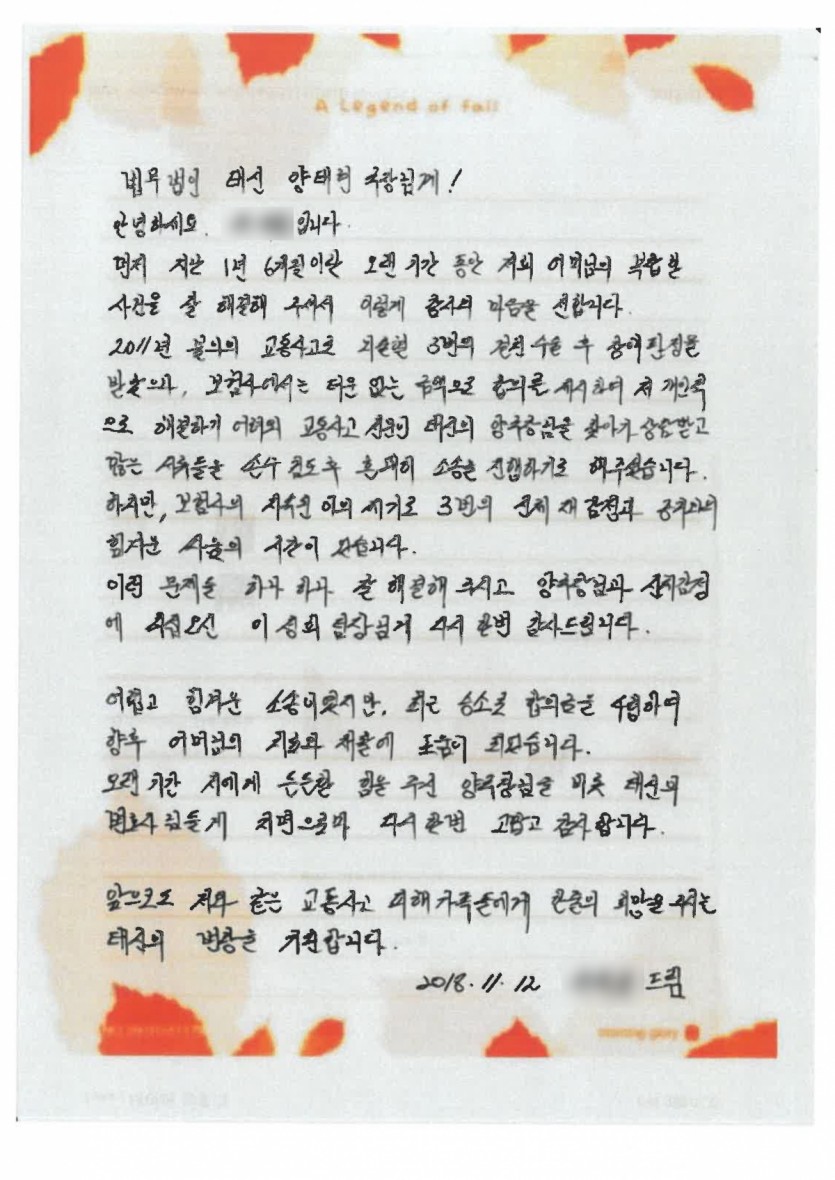 A Legend of fall
법무법인 태신 양태현 국장님께!
안녕하세요. 입니다.
먼저 지난 1년 6개월이란 오랜기간 동안 저희 어머님의 복잡한
사건을 잘 해결해 주셔서 이렇게 감사의 마음을 전합니다.
2011년 불의의 교통사고로 3번의 수술 후 장애판정을
받았으나, 보험사에서는 터무니 없는 금액으로 합의를 제시하여 저 개인적
으로 해결하기 어려워 교통사고 전문인 태신의 양국장님을 찾아가 상담받고
많은 서류들을 손수 검토 후 흔쾌히 소송을 진행하기로 해주셨습니다.
하지만, 보험사의 이의 제기로 3번의 신체 재감정과
힘겨운 싸움의 시간이 었습니다.
이런 문제들 하나 하나 잘 해결해 주시고 양국장님과 신체감정
에 직접오신 이성희 팀장님게 다시 한번 감사드립니다.
어렵고 힘겨운 소송이었지만, 최근 승소로 합의금을 수령하여
향후 어머님의 치료와 재활에 도움이 되었습니다.
오랜기간 저에게 든든한 힘을 주신 양국장님을 비롯 태신의
변호사님들게 지면으로나마 다시한번 고맙고 감사합니다.
앞으로도 저와 같은 교통사고 피해가족들에게 한줄의 희망을 주시는
태신의 번창을 기원합니다.
2018.11.12 드림
morning glory